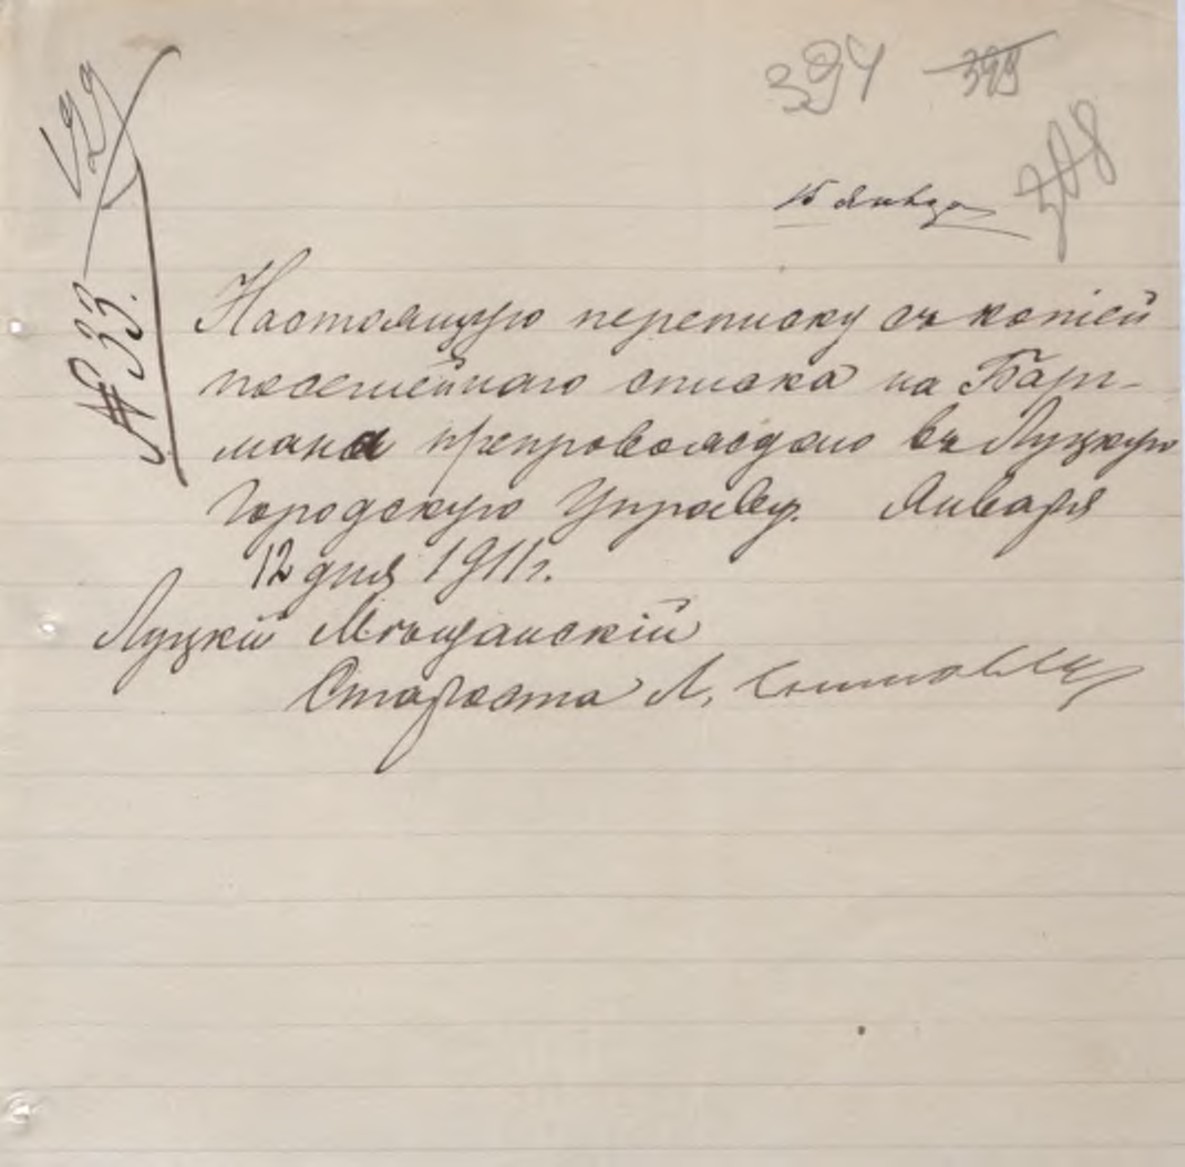 394 399
308
15 Января
№ 33.
Настоящую переписку съ копіей
посемейнаго списка на Барг-
мана препровождаю въ Луцкую
Городскую Управу. Января
12 дня 1911 г.
Луцкій Мѣщанскій
Староста Л.